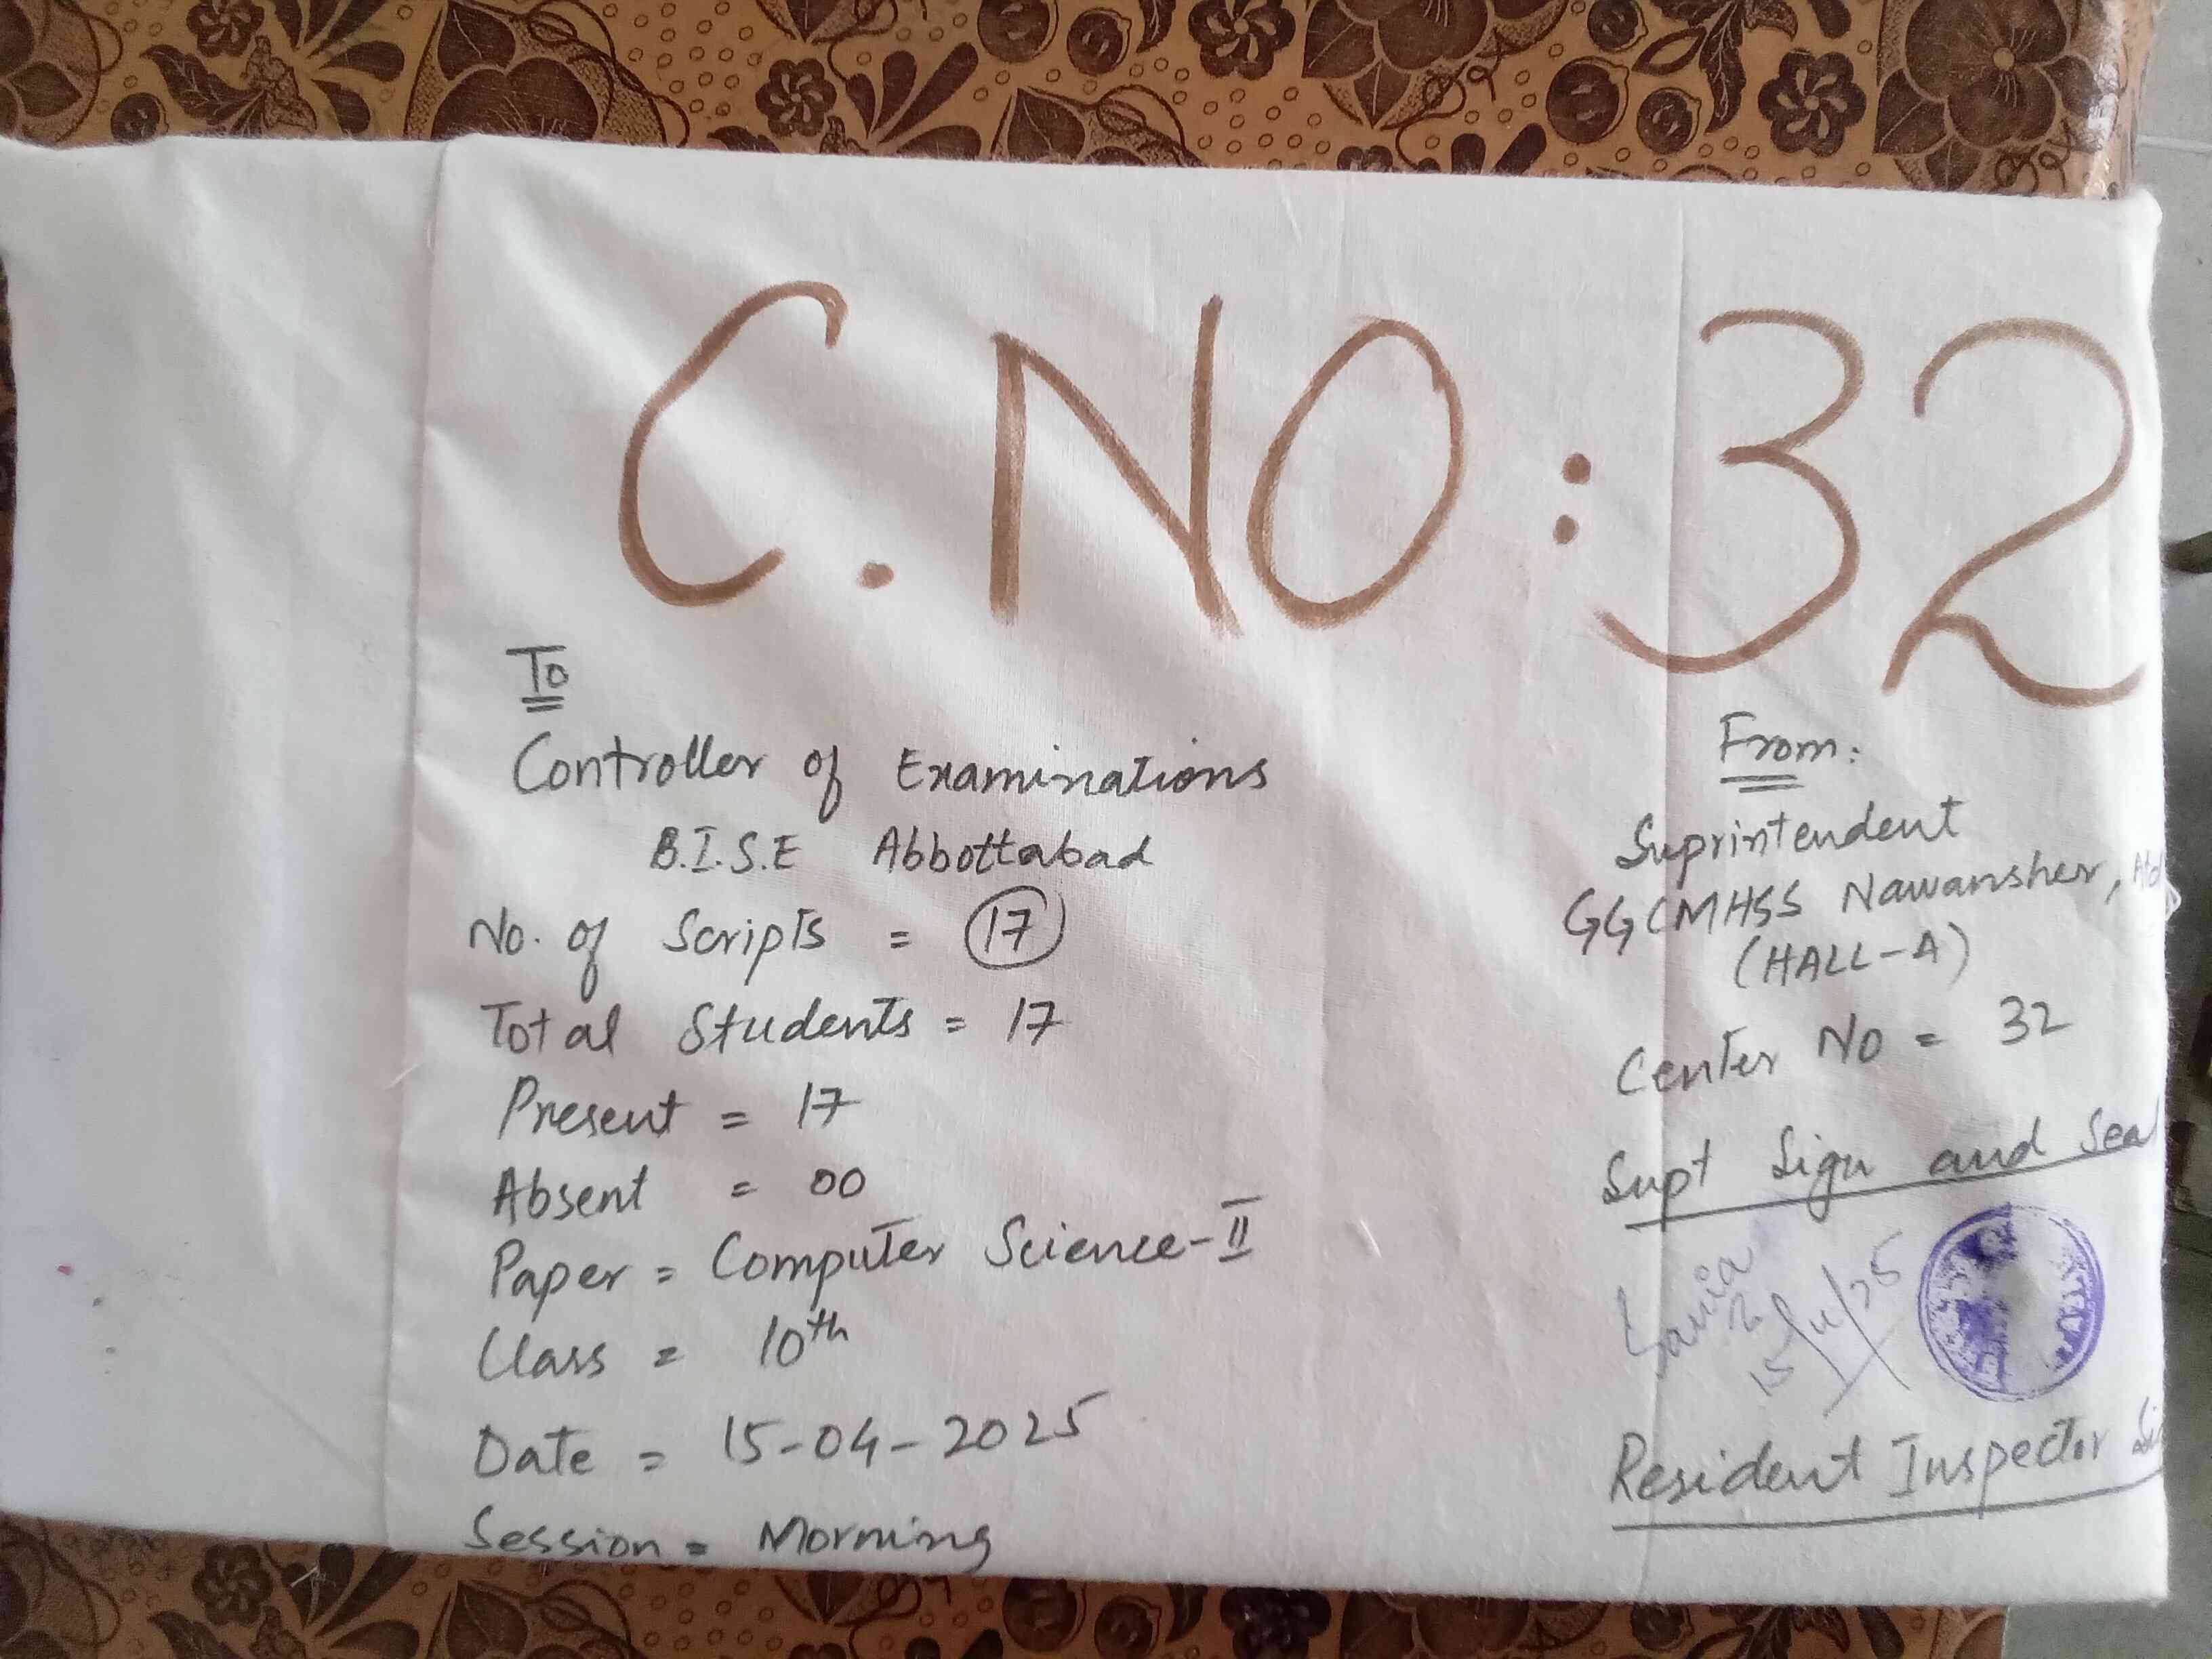 C.NO:32
To
Controller of Examinations
B.I.S.E Abbottabad
No. of Scripts = 17
Total Students = 17
Present = 17
Absent = 00
Paper = Computer Science-II
Class = 10th
Date = 15-04-2025
Session = Morning
From:
Suprintendent
GGCMHSS Nawansher,
(HALL-A)
Center No = 32
Supt Sign and Seal
15/4/25
Resident Inspector